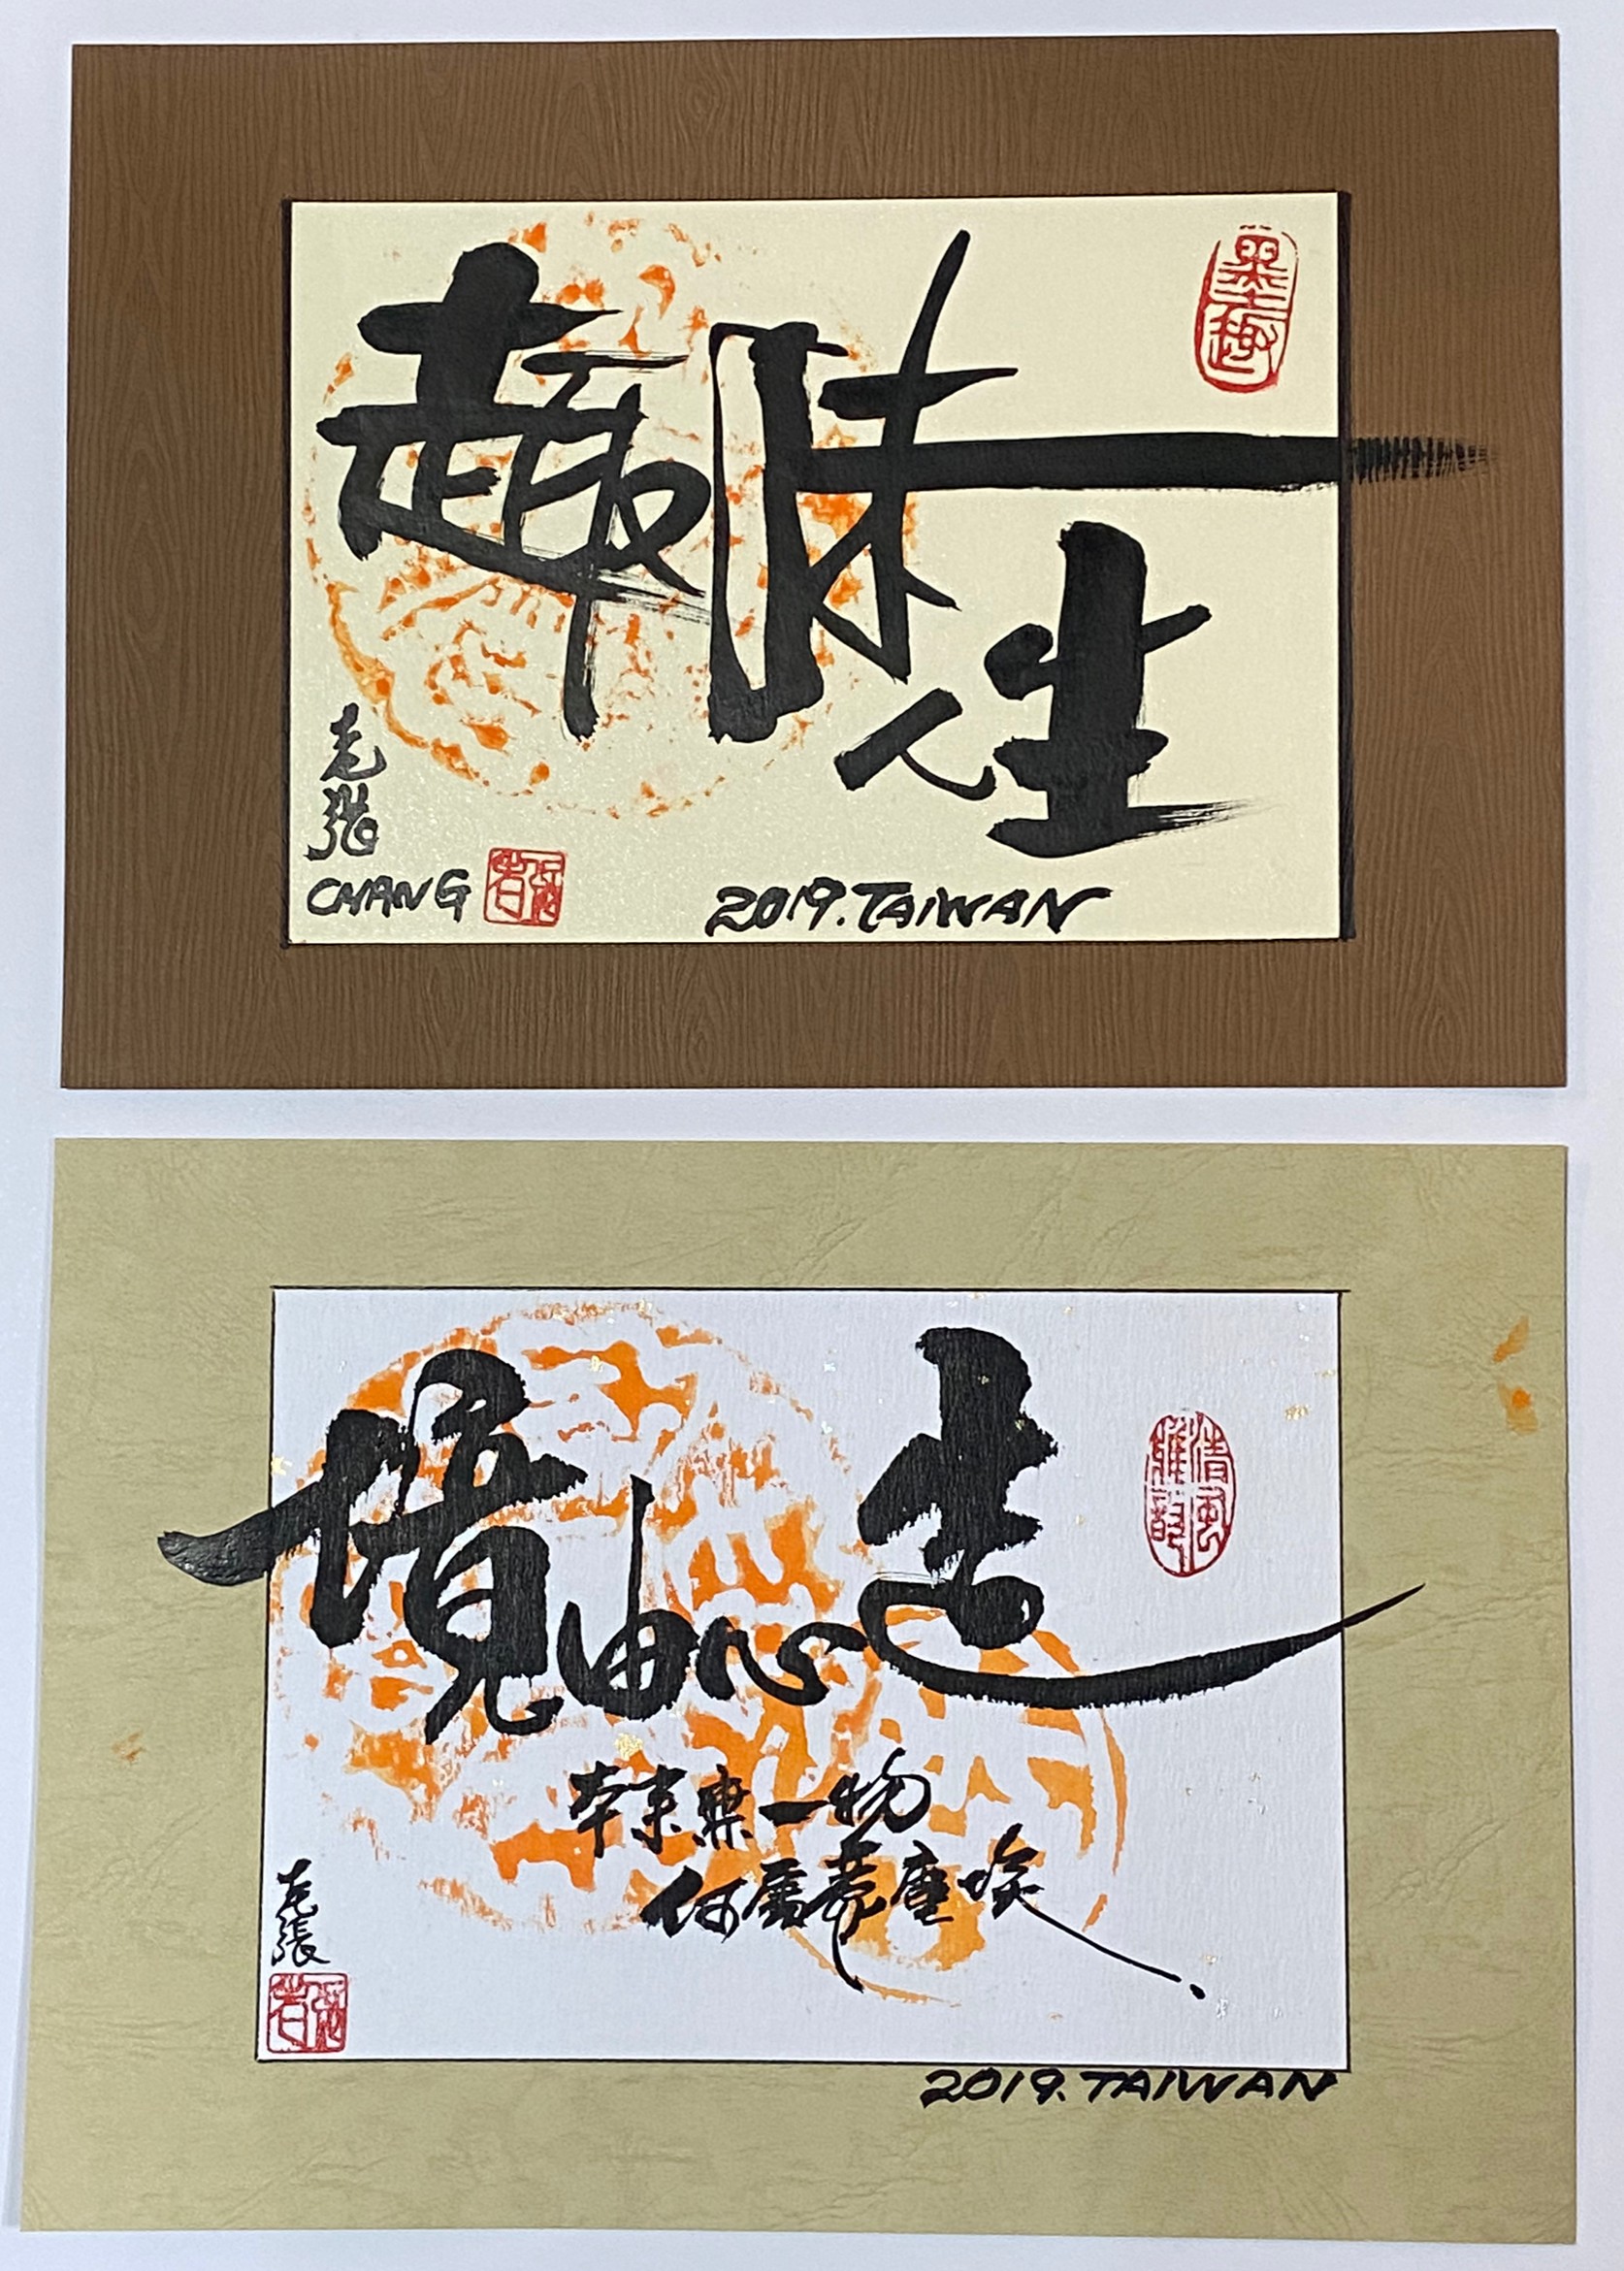 趣味
人生
墨海
老張
CHANG
2019.TAIWAN
境由心生
清風
雅韵
本來無一物
何處惹塵埃
老張
2019.TAIWAN